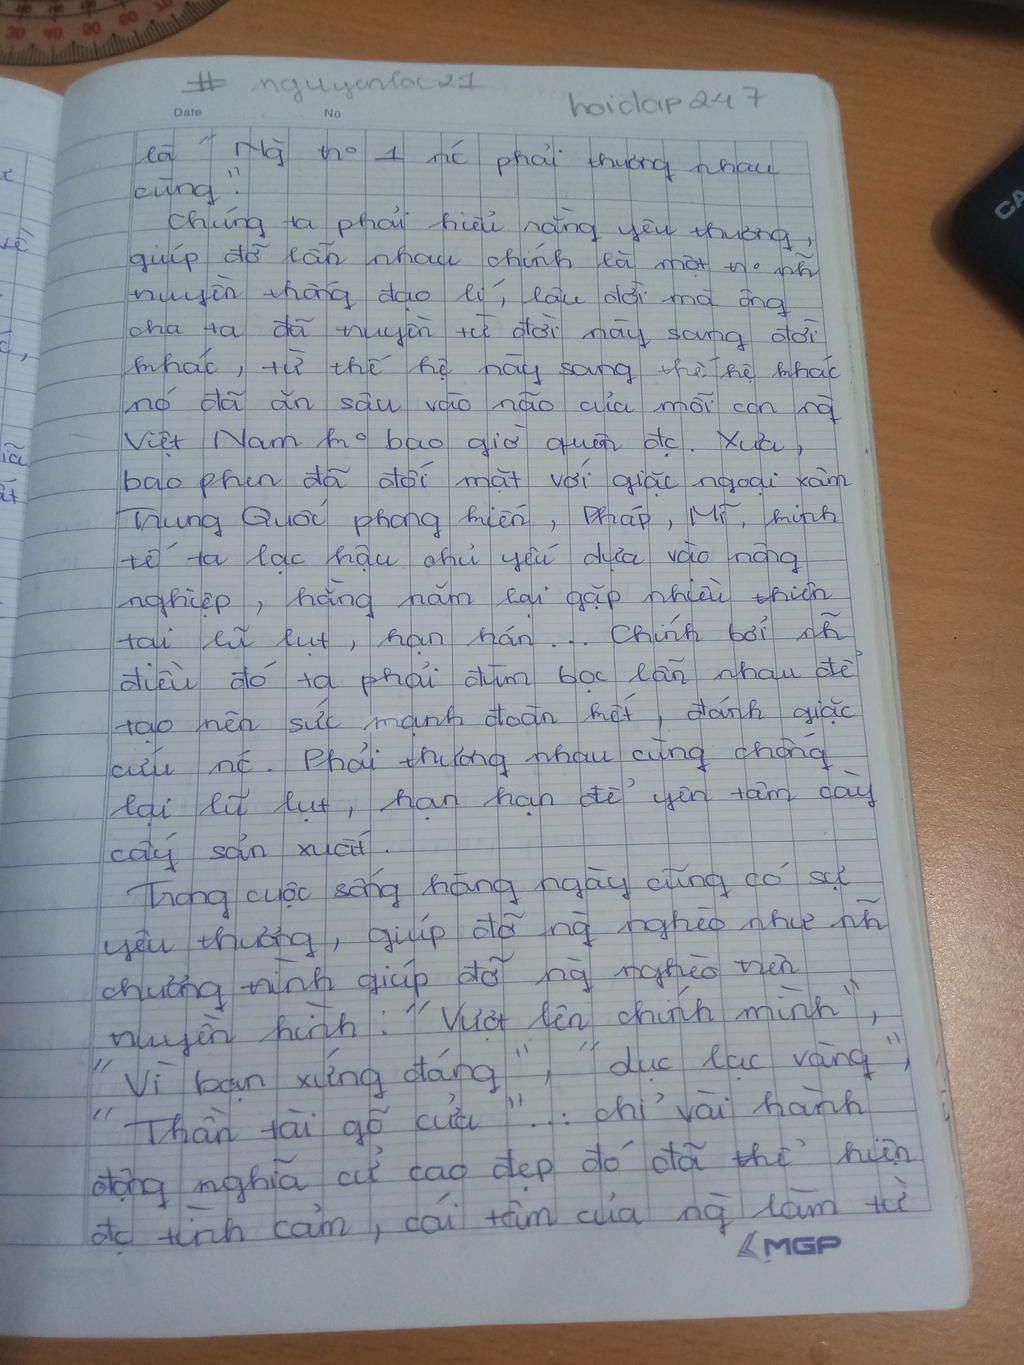 # nguyenloc21
hoidap247
Date No
là "Ng̀ tr° 1 nć phải thương nhau
cùng".
Chúng ta phải hiểu rằng yêu thương,
giúp đỡ lẫn nhau chính là một tr° nh̃
truyền thống đạo lí, lâu đời mà ông
cha ta đã truyền từ đời này sang đời
khác, từ thế hệ này sang thế hệ khác
nó đã ăn sâu vào não của mỗi con ng̀
Việt Nam k° bao giờ quên đc. Xưa,
bao phen đã đối mặt với giặc ngoại xâm
Trung Quốc phong kiến, Pháp, Mĩ, kinh
tế ta lạc hậu chủ yếu dựa vào nông
nghiệp, hằng năm lại gặp nhiều thiên
tai lũ lụt, hạn hán... Chính bởi nh̃
điều đó ta phải đùm bọc lẫn nhau để
tạo nên sức mạnh đoàn kết, đánh giặc
cứu nć. Phải thương nhau cùng chống
lại lũ lụt, hạn hạn để yên tâm cày
cấy sản xuất.
Trong cuộc sống hằng ngày cũng có sự
yêu thương, giúp đỡ ng̀ nghèo như nh̃
chương trình giúp đỡ ng̀ nghèo trên
truyền hình: "Vượt lên chính mình",
"Vì bạn xứng đáng", "dục lạc vàng",
"Thần tài gõ cửa"... chỉ vài hành
động nghĩa cử cao đẹp đó đã thể hiện
đc tình cảm, cái tâm của ng̀ làm từ
MGP
CA